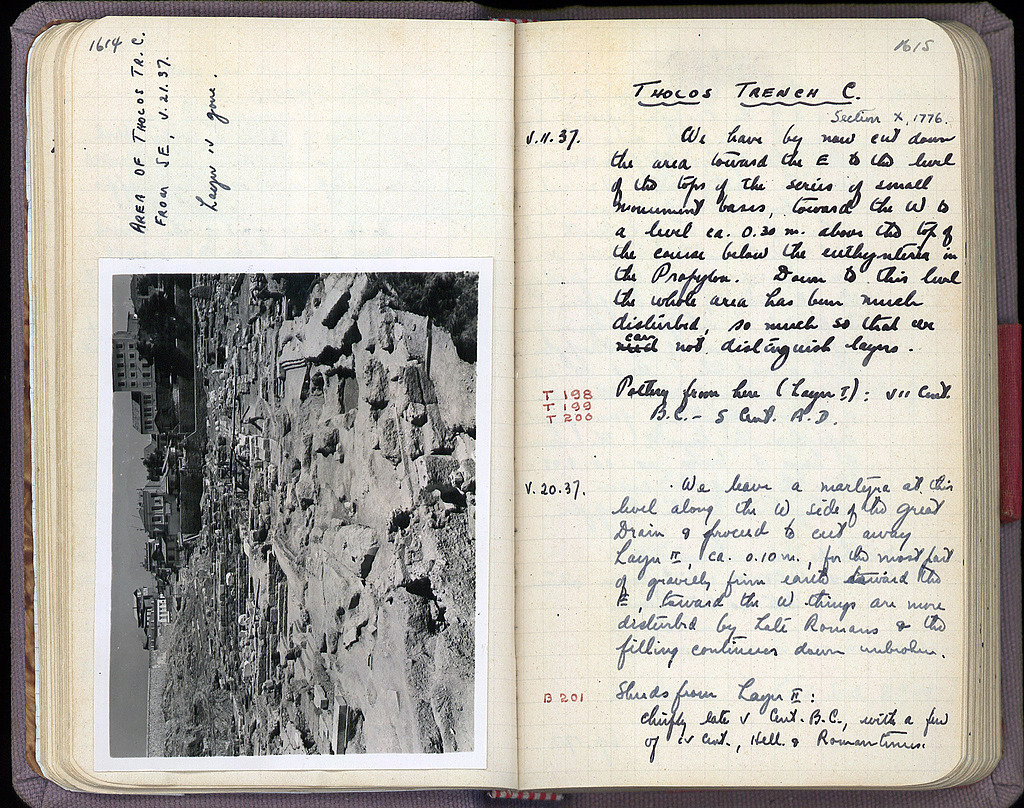 1614
AREA OF THOLOS TR. C.
FROM SE, V.21.37.
Layer IV gone.
1615
THOLOS TRENCH C.
Section X, 1776.
V.11.37. We have by now cut down
the area toward the E to the level
of the tops of the series of small
monument bases, toward the W to
a level ca. 0.30 m. above the top of
the course below the euthynteria in
the Propylon. Down to this level
the whole area has been much
disturbed, so much so that we
can
not distinguish layers.
T 198 Pottery from here (Layer I): VII Cent.
T 199
T 200 B.C. - 5 Cent. A.D.
V.20.37. We leave a martyra at this
level along the W side of the Great
Drain & proceed to cut away
Layer II, ca. 0.10 m., for the most part
of gravelly firm earth toward the
E, toward the W things are more
disturbed by Late Romans & the
filling continues down unbroken.
B 201 Sherds from Layer II:
chiefly late V Cent. B.C., with a few
of IV Cent., Hell. & Roman times.